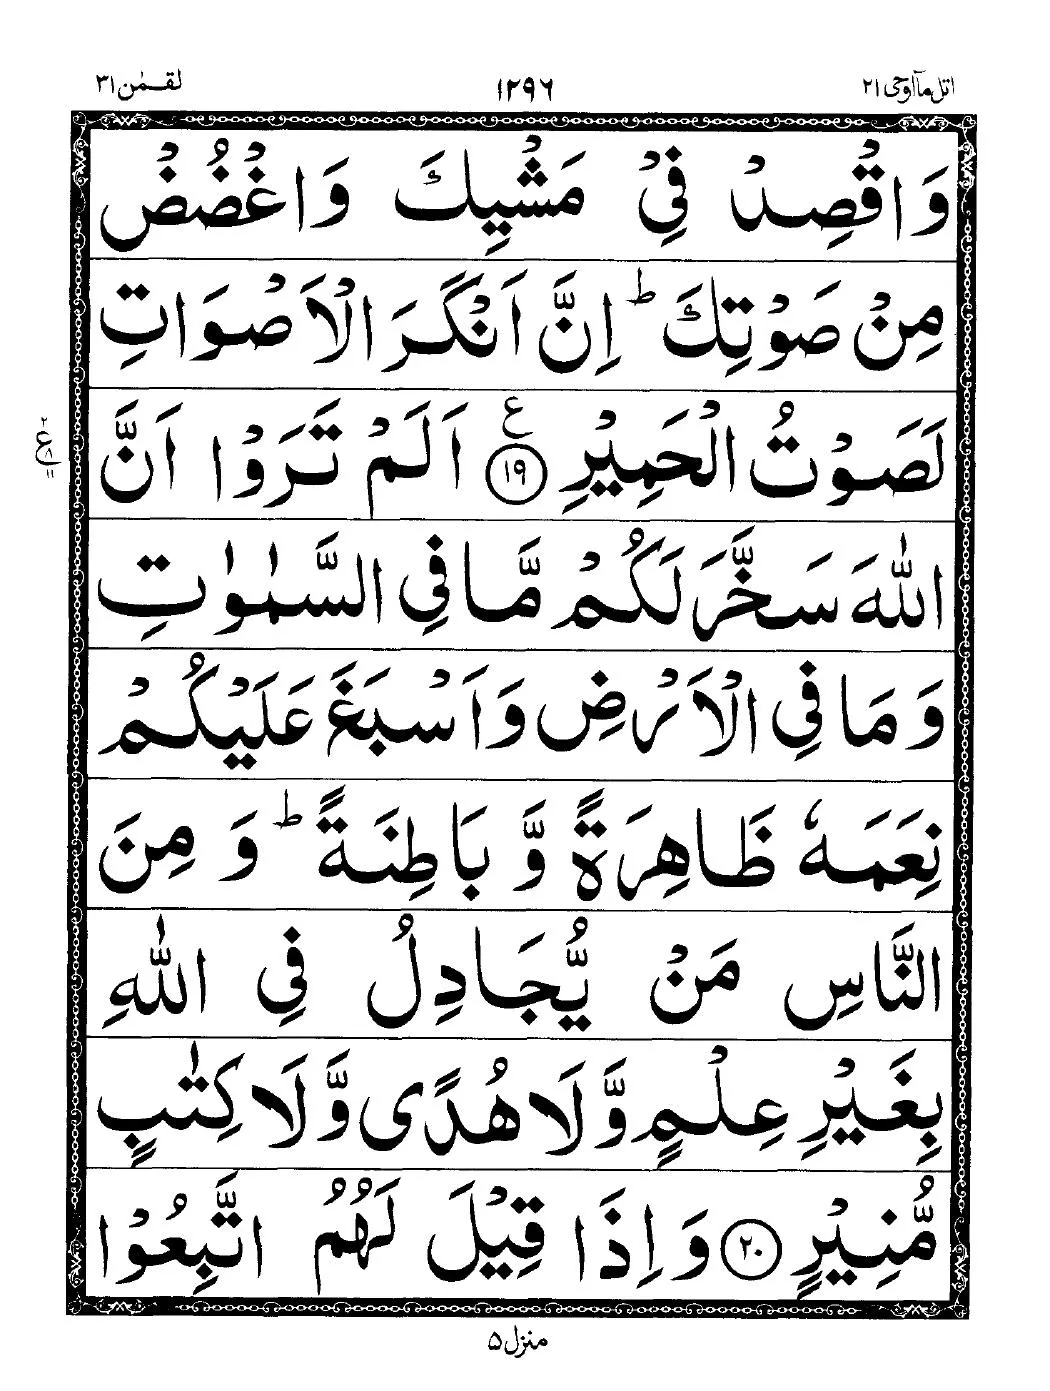 اتل مآ اوحی ۲۱
۱۲۹۶
لقمٰن ۳۱
وَاقْصِدْ فِیْ مَشْیِكَ وَاغْضُضْ
مِنْ صَوْتِكَ ؕ اِنَّ اَنْكَرَ الْاَصْوَاتِ
لَصَوْتُ الْحَمِیْرِ ۱۹ ع اَلَمْ تَرَوْا اَنَّ
ع ۲ ۸ ۱۱
اللّٰهَ سَخَّرَ لَكُمْ مَّا فِی السَّمٰوٰتِ
وَمَا فِی الْاَرْضِ وَاَسْبَغَ عَلَیْكُمْ
نِعَمَهٗ ظَاهِرَةً وَّ بَاطِنَةً ؕ وَ مِنَ
النَّاسِ مَنْ یُّجَادِلُ فِی اللّٰهِ
بِغَیْرِ عِلْمٍ وَّلَا هُدًی وَّلَا كِتٰبٍ
مُّنِیْرٍ ۲۰ وَ اِذَا قِیْلَ لَهُمُ اتَّبِعُوْا
منزل ۵